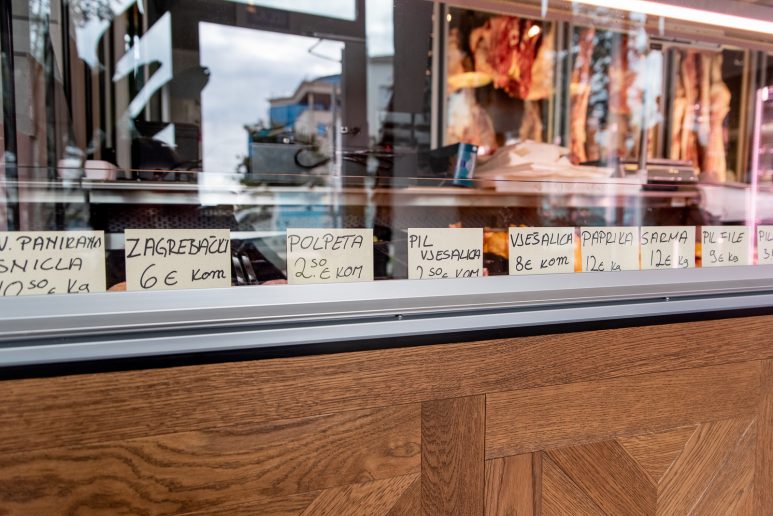 V. PANIRANA
SNICLA
10.50 € Kg
ZAGREBAČKI
6 € KOM
POLPETA
2.50 € KOM
PIL
VJESALICA
2.50 € KOM
VJEŠALICA
8€ KOM
PAPRIKA
12€ KG
SARMA
12€ KG
PIL FILE
9€ KG
PIL